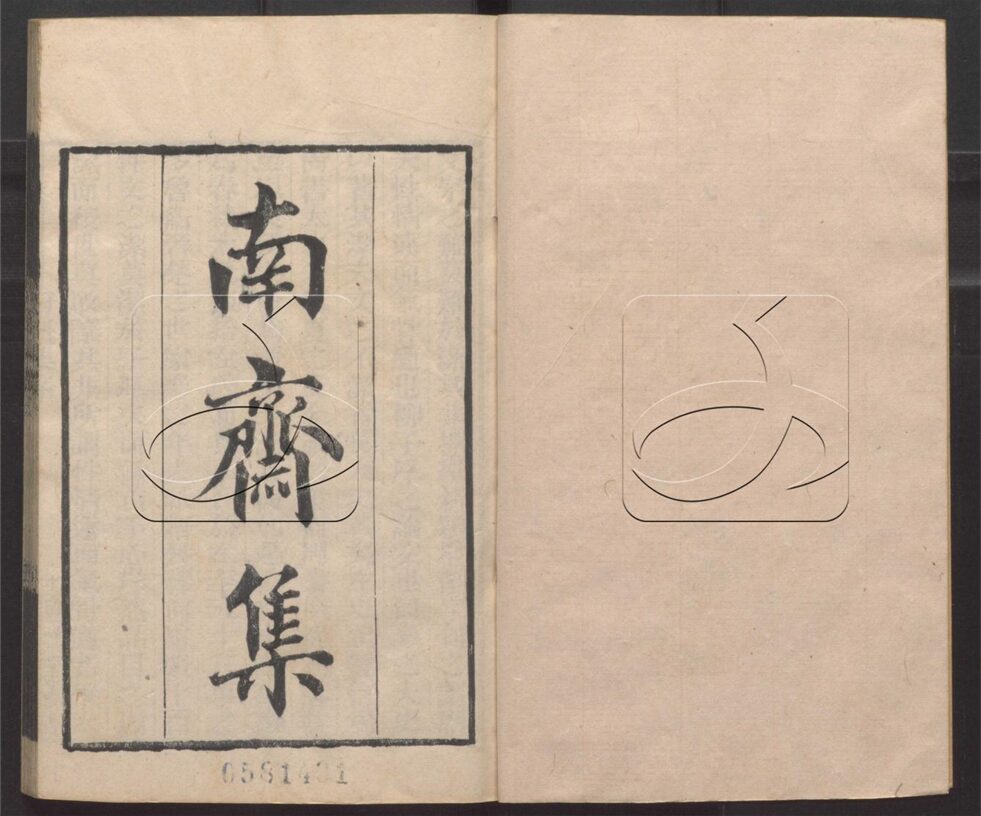 南齋集
0581431